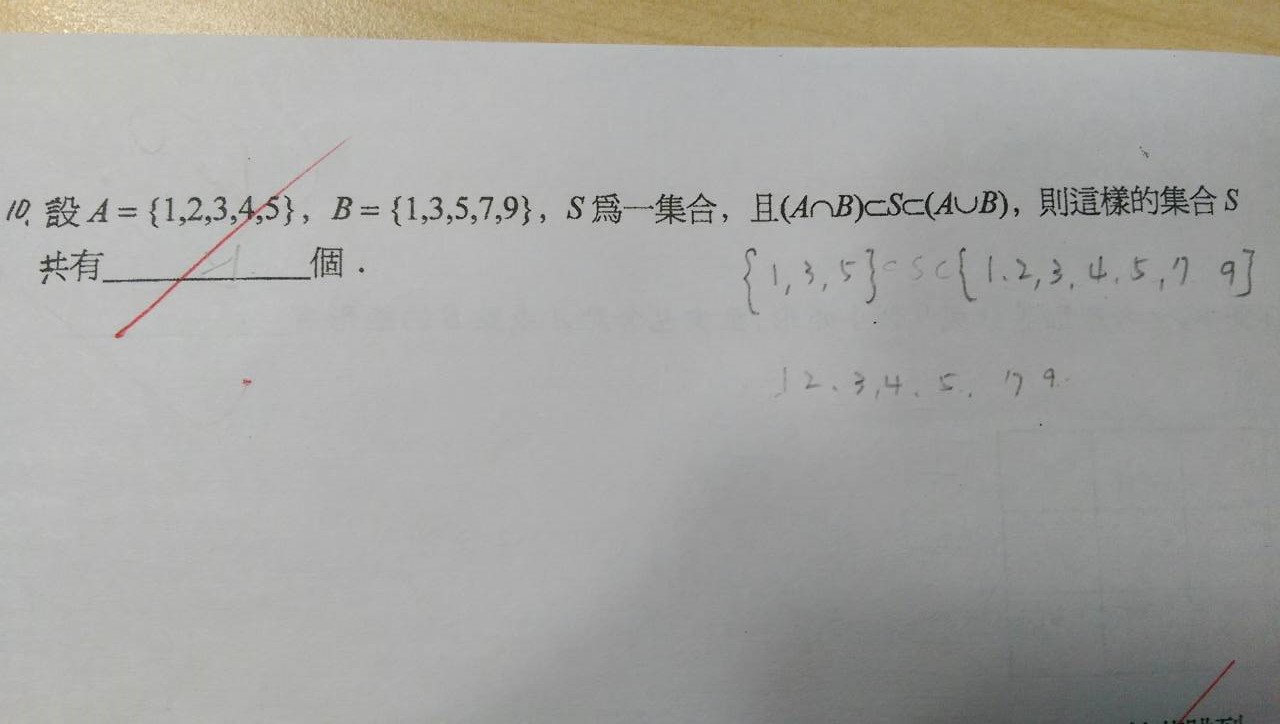 10. 設 A = {1,2,3,4,5}, B = {1,3,5,7,9}, S 爲一集合, 且(A∩B)⊂S⊂(A∪B), 則這樣的集合 S
共有__________個.
{1,3,5}⊂S⊂{1.2,3,4.5,7 9}
1 2.3,4.5. 7 9.